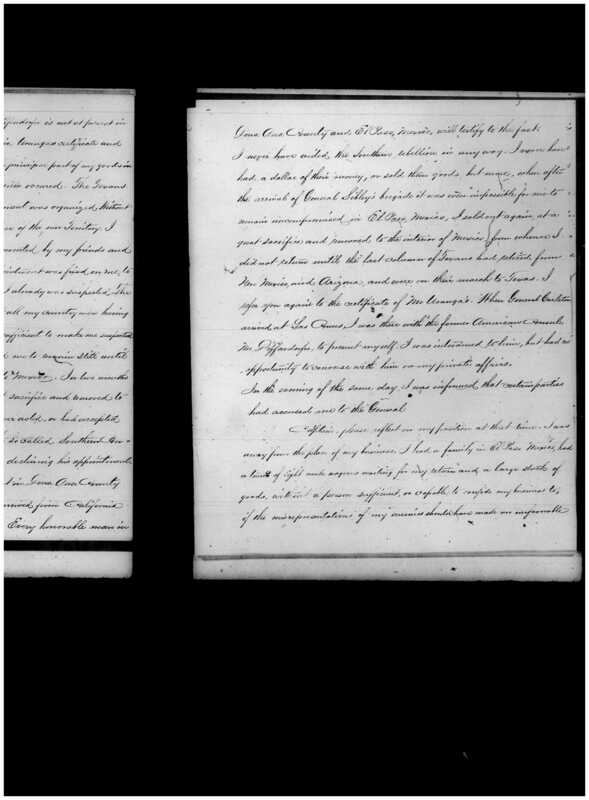 is not at present in
certificate and
principal part of my goods in
secured. The Texans
was organized without
of the new Territory I
by my friends and
was forced on me, to
I already was suspected. The
all my country men having
sufficient to make me suspected
me to remain still until
Mexico. In two months
sacrifice and removed to
acted, or had accepted
so called Southern
declining his appointment
in Dona Ana County
arrived from California
Every honorable man in
Dona Ana County and El Paso, Mexico, will testify to the fact.
I never have aided the Southern rebellion in any way. I never have
had a dollar of their money, or sold them goods but once, when after
the arrival of General Sibley's brigade it was even impossible for me to
remain uncompromised in El Paso, Mexico, I sold out again, at a
great sacrifice and removed to the interior of Mexico, from whence I
did not return untill the last column of Texans had retired from
New Mexico, and Arizona, and were on their march to Texas. I
refer you again to the certificate of Mr Uranga's. When General Carleton
arrived at Las Cruces I was there with the former American Consul
Mr. Diffendorfer, to present myself. I was introduced to him, but had no
opportunity to converse with him on my private affairs.
In the evening of the same day I was informed that certain parties
had accused me to the General.
Captain, please reflect on my position at that time. I was
away from the place of my business, I had a family in El Paso Mexico, had
a train of eight mule wagons waiting for my return and a large stock of
goods, without a person sufficient, or capable, to confide my business to;
if the misrepresentations of my enemies should have made an unfavorable